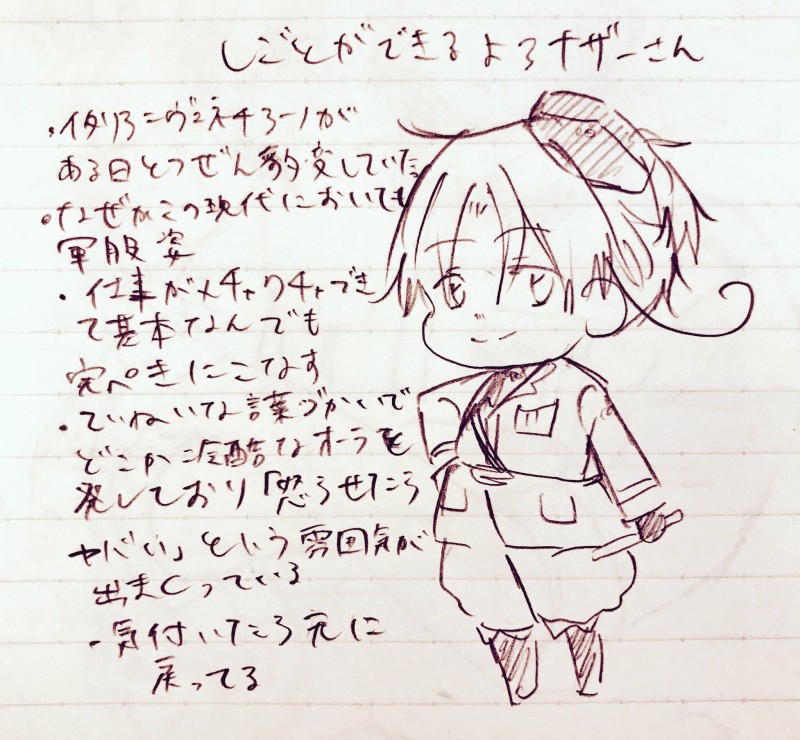 しごとができるよろナザーさん
・イタリア=ヴェネチアーノが
ある日とつぜん豹変していた
・なぜかこの現代においても
軍服姿
・仕事がメチャクチャでき
て基本なんでも
完ぺきにこなす
・ていねいな言葉づかいで
どこか冷酷なオーラを
発しており「怒らせたら
ヤバい」という雰囲気が
出まくっている
・気付いたら元に
戻ってる